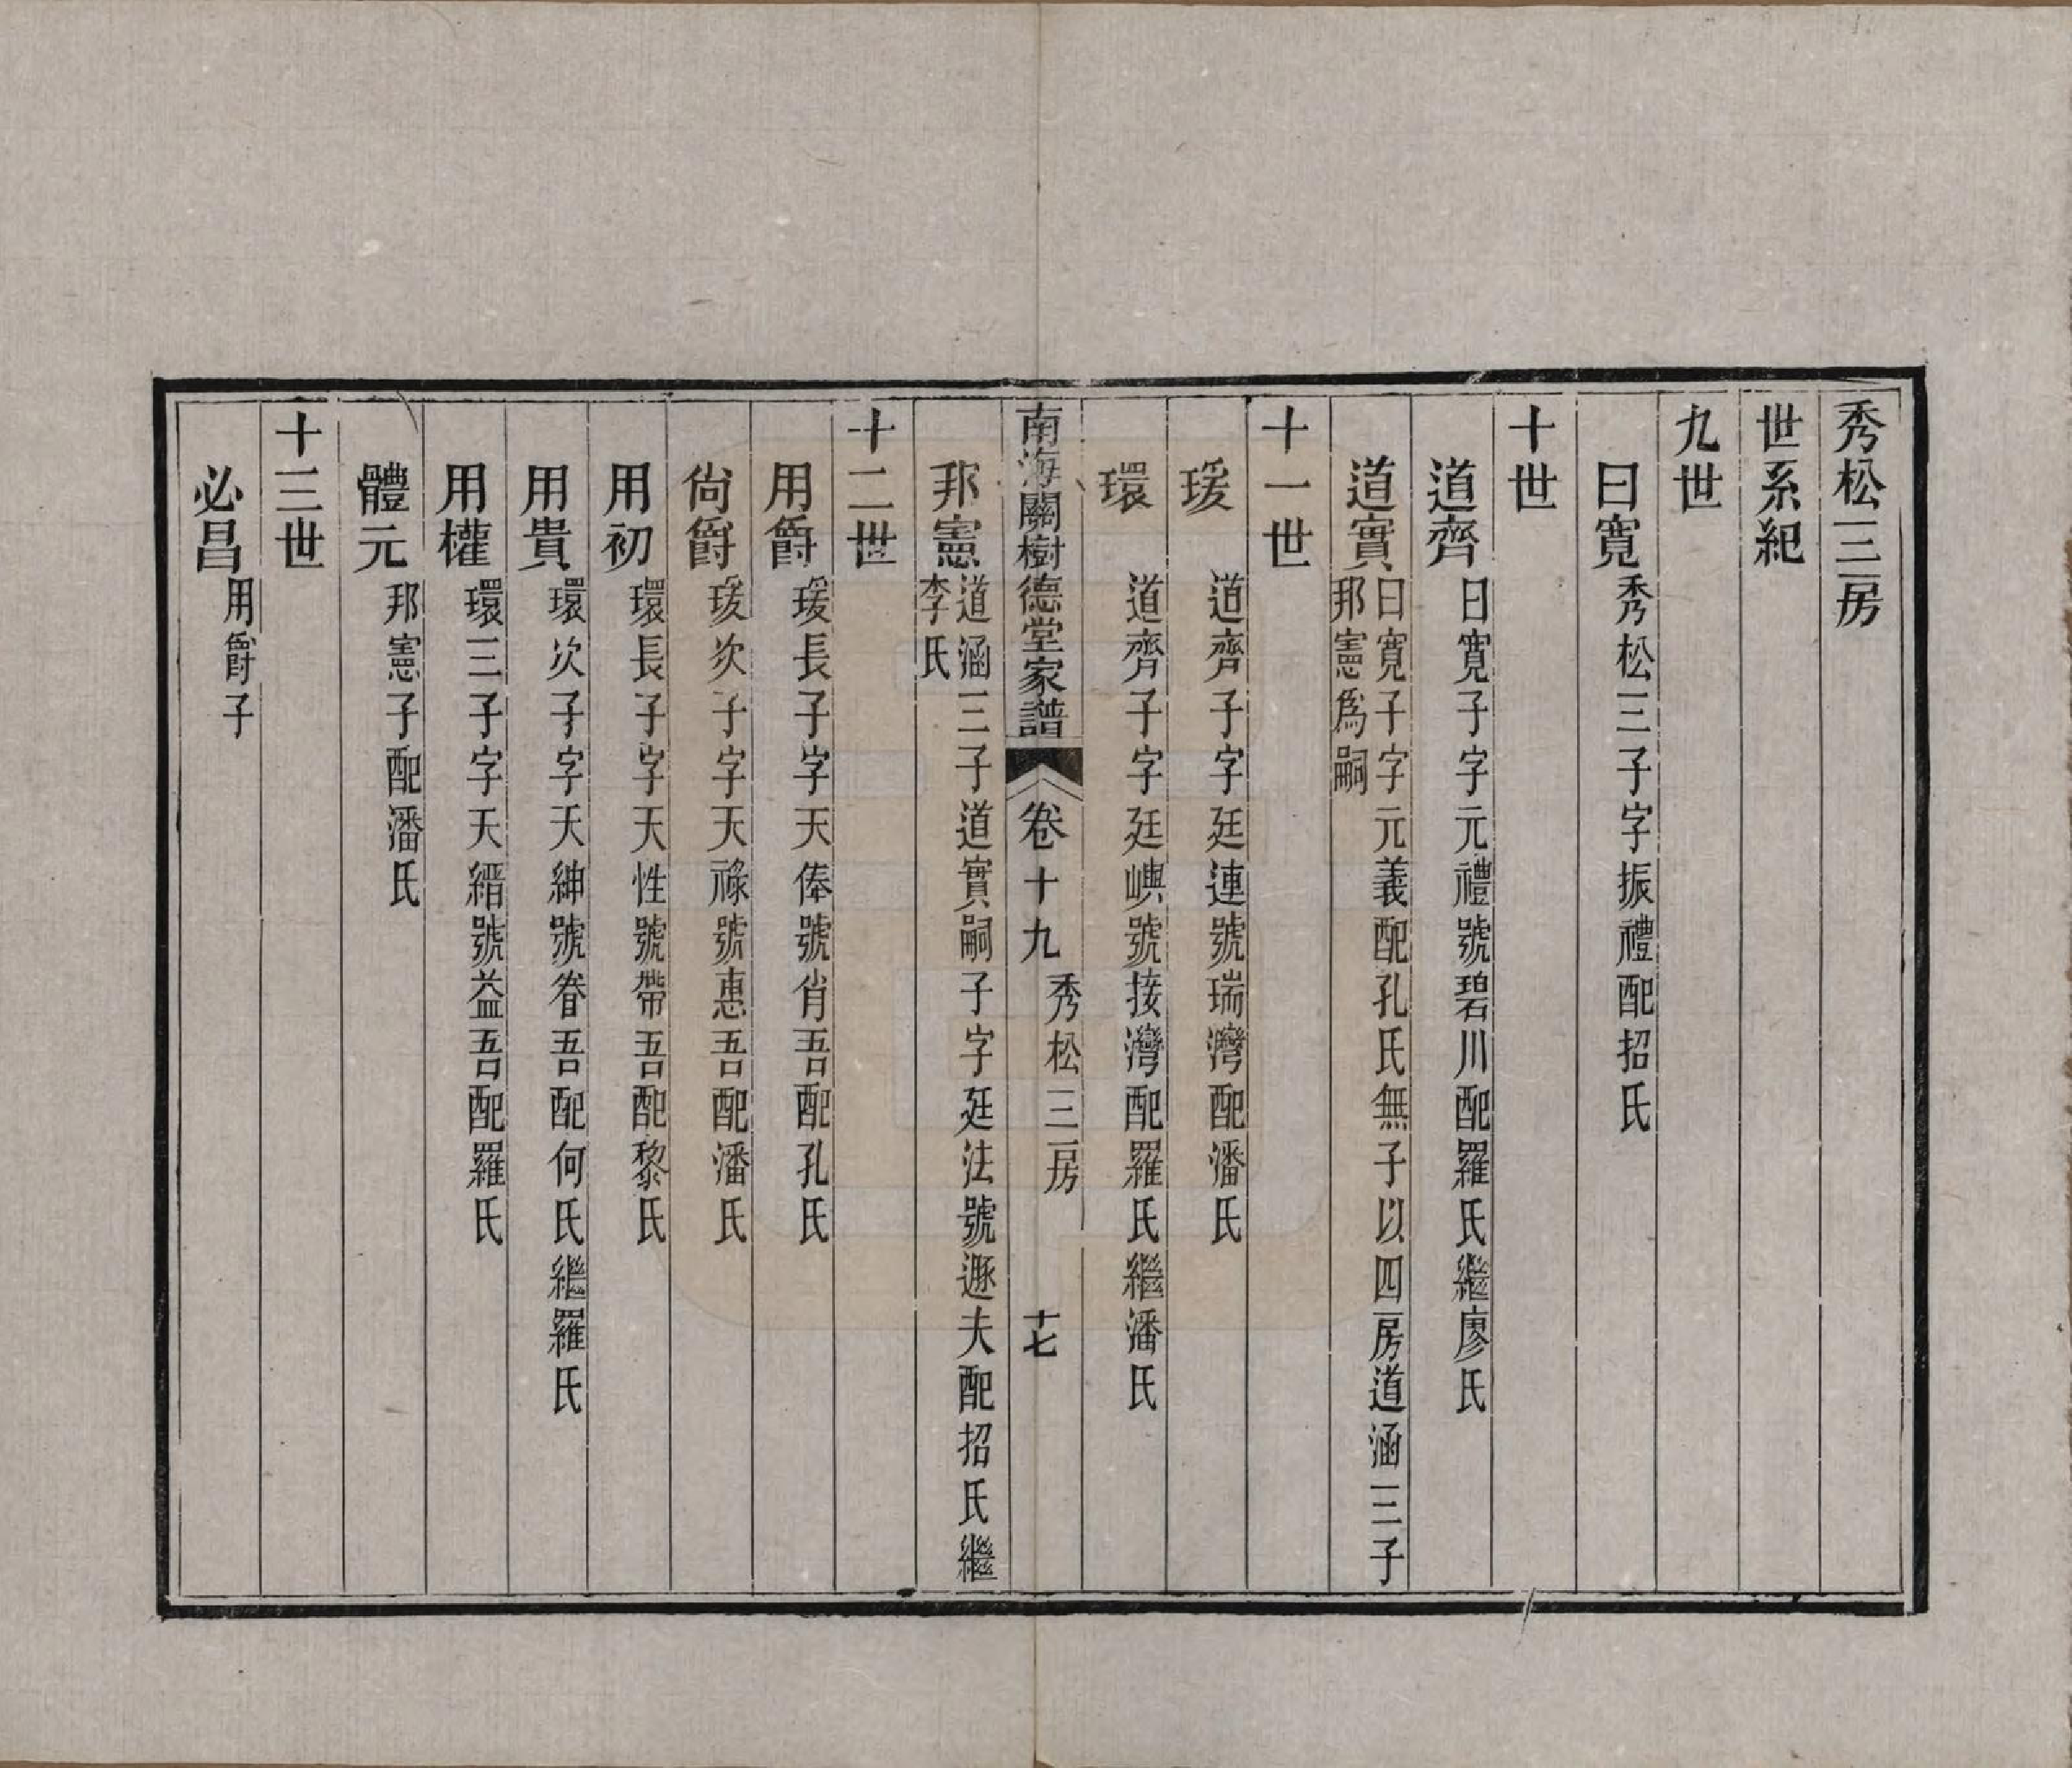 秀松三房
世系紀
九世
曰寬 秀松三子字振禮配招氏
十世
道齊 曰寬子字元禮號碧川配羅氏繼廖氏
道實 曰寬子字元義配孔氏無子以四房道涵三子
邦憲爲嗣
十一世
瑗 道齊子字廷連號瑞灣配潘氏
環 道齊子字廷嶼號接灣配羅氏繼潘氏
南海關樹德堂家譜 卷十九 秀松三房 十七
邦憲 道涵三子道實嗣子字廷法號遜夫配招氏繼
李氏
十二世
用爵 瑗長子字天俸號肖吾配孔氏
尙爵 瑗次子字天祿號惠吾配潘氏
用初 環長子字天性號帶吾配黎氏
用貴 環次子字天紳號眷吾配何氏繼羅氏
用權 環三子字天縉號益吾配羅氏
體元 邦憲子配潘氏
十三世
必昌 用爵子